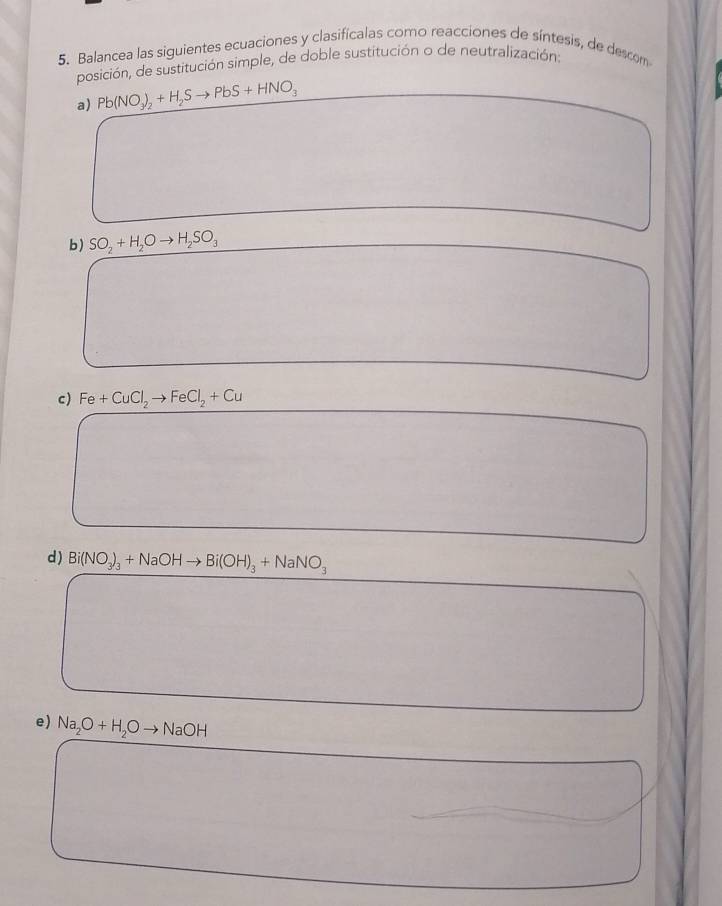 5. Balancea las siguientes ecuaciones y clasifícalas como reacciones de síntesis, de descom-
posición, de sustitución simple, de doble sustitución o de neutralización:
a) Pb(NO₃)₂ + H₂S → PbS + HNO₃
b) SO₂ + H₂O → H₂SO₃
c) Fe + CuCl₂ → FeCl₂ + Cu
d) Bi(NO₃)₃ + NaOH → Bi(OH)₃ + NaNO₃
e) Na₂O + H₂O → NaOH